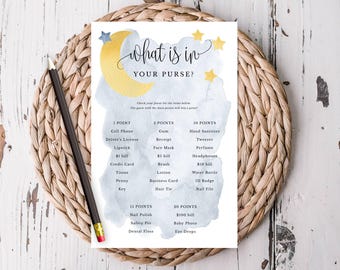 what is in
YOUR PURSE?
Check your purse for the items below.
The guest with the most points will win a prize!
1 POINT
Cell Phone
Driver's License
Lipstick
$1 bill
Credit Card
Tissue
Penny
Key
5 POINTS
Gum
Receipt
Face Mask
$5 bill
Brush
Lotion
Business Card
Hair Tie
10 POINTS
Hand Sanitizer
Tweezer
Perfume
Headphones
$10 bill
Water Bottle
ID Badge
Nail File
15 POINTS
Nail Polish
Safety Pin
Dental Floss
20 POINTS
$100 bill
Baby Photo
Eye Drops